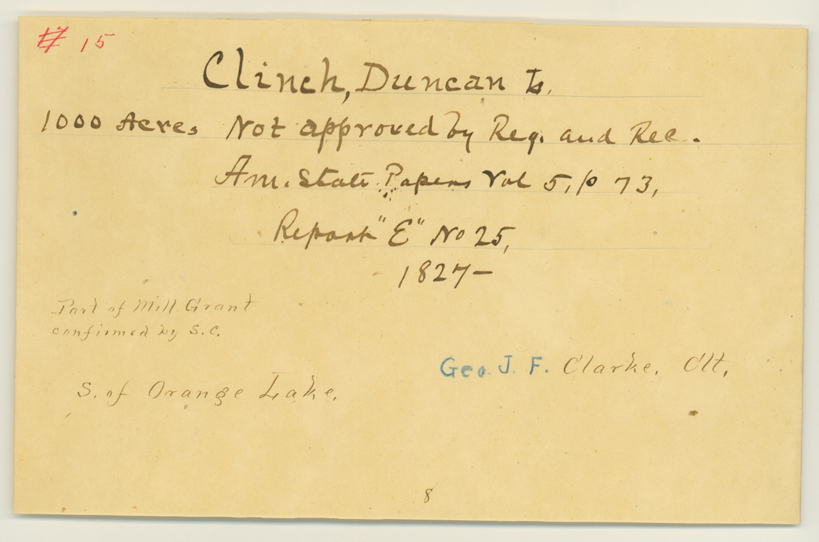 # 15
Clinch, Duncan L.
1000 Acres Not approved by Reg. and Rec.
Am. State Papers Vol 5, p 73,
Report "E" No 25,
1827-
Part of Mill Grant
confirmed by S.C.
Geo. J. F. Clarke, Clt,
S. of Orange Lake.
8